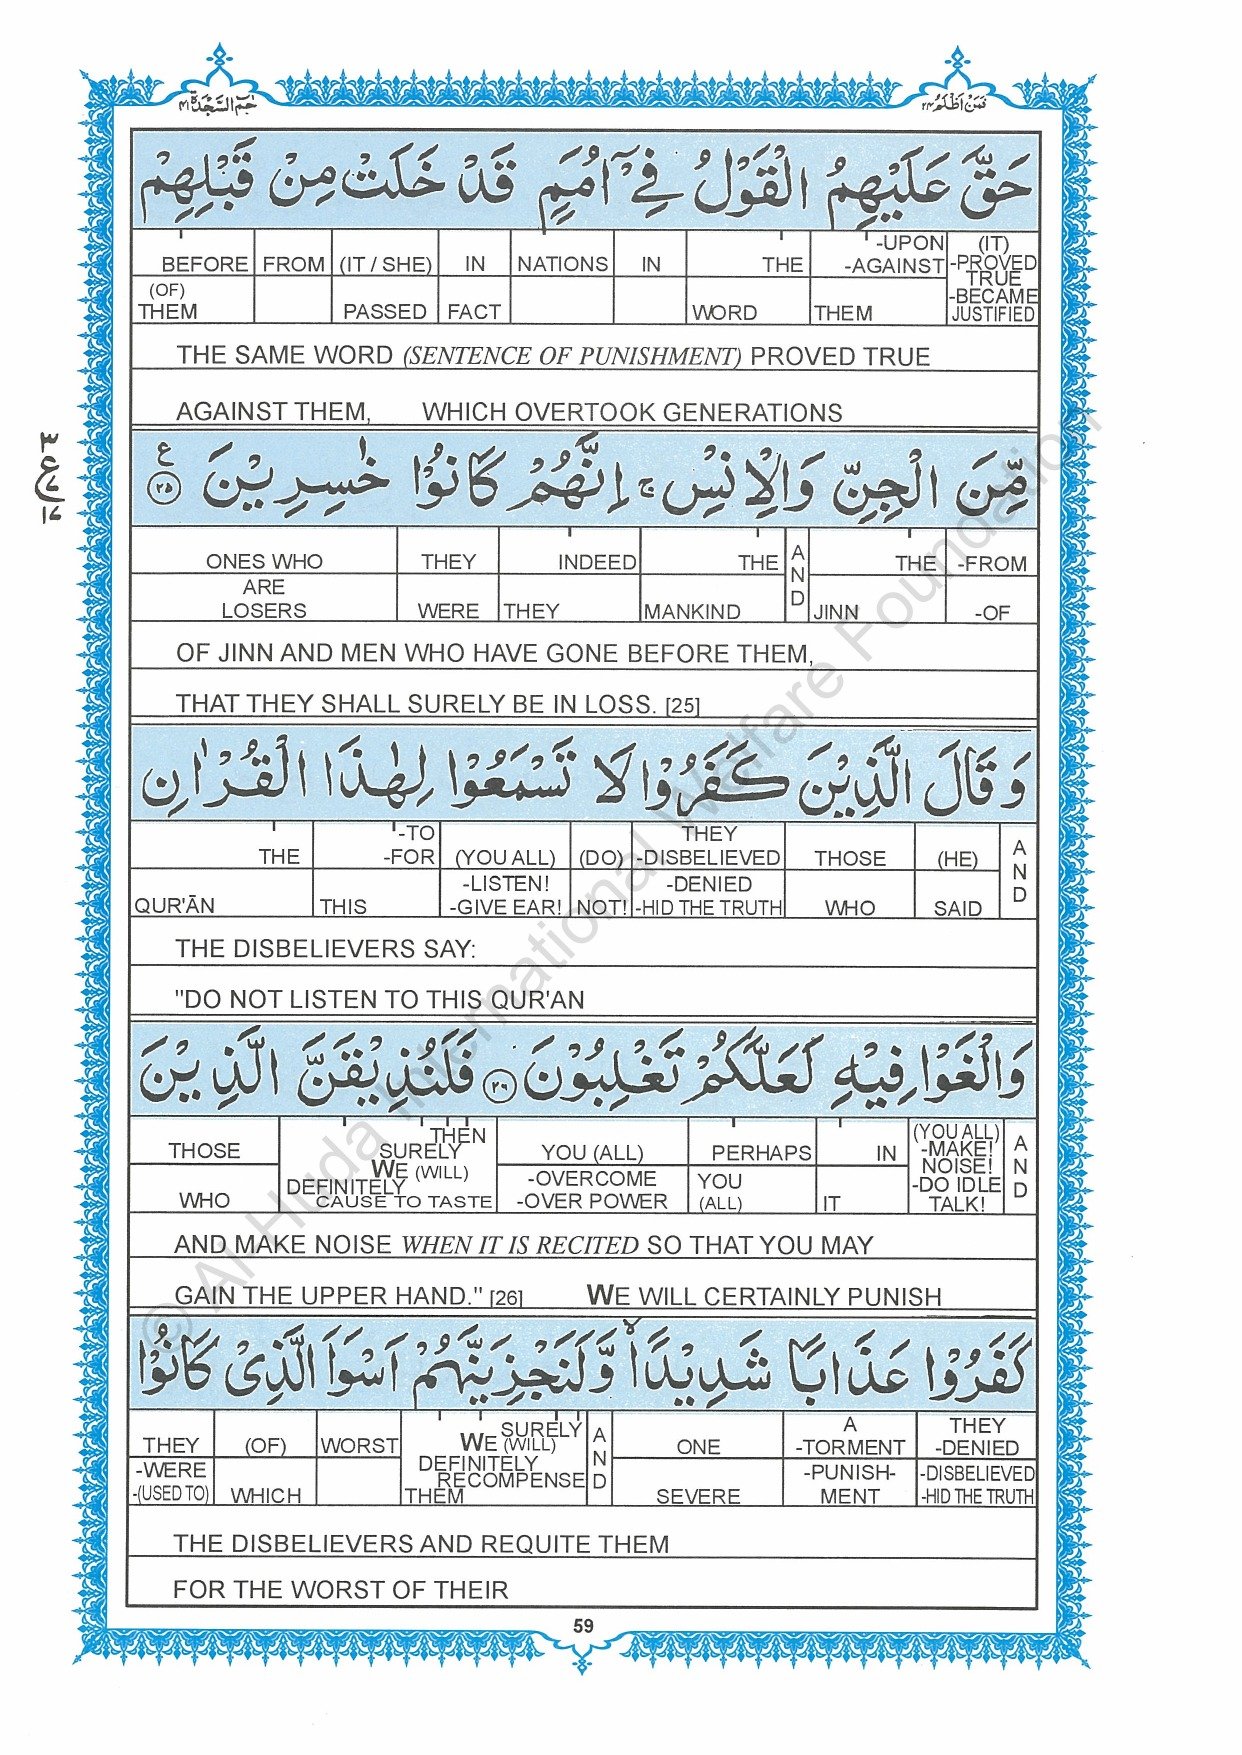 حٰمٓ السَّجْدَة ٤١
فَمَنْ اَظْلَمُ ٢٤
حَقَّ عَلَيْهِمُ الْقَوْلُ فِيْٓ اُمَمٍ قَدْ خَلَتْ مِنْ قَبْلِهِمْ
BEFORE FROM (IT / SHE) IN NATIONS IN THE -UPON -AGAINST (IT) -PROVED TRUE -BECAME JUSTIFIED
(OF) THEM PASSED FACT WORD THEM
THE SAME WORD (SENTENCE OF PUNISHMENT) PROVED TRUE
AGAINST THEM, WHICH OVERTOOK GENERATIONS
مِّنَ الْجِنِّ وَالْاِنْسِ ۚ اِنَّهُمْ كَانُوْا خٰسِرِيْنَ ٢٥ ع
٣
ع
١٧
ONES WHO THEY INDEED THE AND THE -FROM
ARE LOSERS WERE THEY MANKIND JINN -OF
OF JINN AND MEN WHO HAVE GONE BEFORE THEM,
THAT THEY SHALL SURELY BE IN LOSS. [25]
وَ قَالَ الَّذِيْنَ كَفَرُوْا لَا تَسْمَعُوْا لِهٰذَا الْقُرْاٰنِ
THE -TO -FOR (YOU ALL) (DO) THEY -DISBELIEVED THOSE (HE) AND
QUR'ĀN THIS -LISTEN! -GIVE EAR! NOT! -DENIED -HID THE TRUTH WHO SAID
THE DISBELIEVERS SAY:
"DO NOT LISTEN TO THIS QUR'AN
وَالْغَوْا فِيْهِ لَعَلَّكُمْ تَغْلِبُوْنَ ٢٦ فَلَنُذِيْقَنَّ الَّذِيْنَ
THOSE THEN SURELY WE (WILL) DEFINITELY CAUSE TO TASTE YOU (ALL) PERHAPS IN (YOU ALL) -MAKE! NOISE! -DO IDLE TALK! AND
WHO -OVERCOME -OVER POWER YOU (ALL) IT
AND MAKE NOISE WHEN IT IS RECITED SO THAT YOU MAY
GAIN THE UPPER HAND." [26] WE WILL CERTAINLY PUNISH
كَفَرُوْا عَذَابًا شَدِيْدًا ۙ وَّلَنَجْزِيَنَّهُمْ اَسْوَاَ الَّذِيْ كَانُوْا
THEY (OF) WORST SURELY WE (WILL) DEFINITELY RECOMPENSE THEM AND ONE A -TORMENT THEY -DENIED
-WERE -(USED TO) WHICH SEVERE -PUNISH- MENT -DISBELIEVED -HID THE TRUTH
THE DISBELIEVERS AND REQUITE THEM
FOR THE WORST OF THEIR
59
© Al-Huda International Welfare Foundation